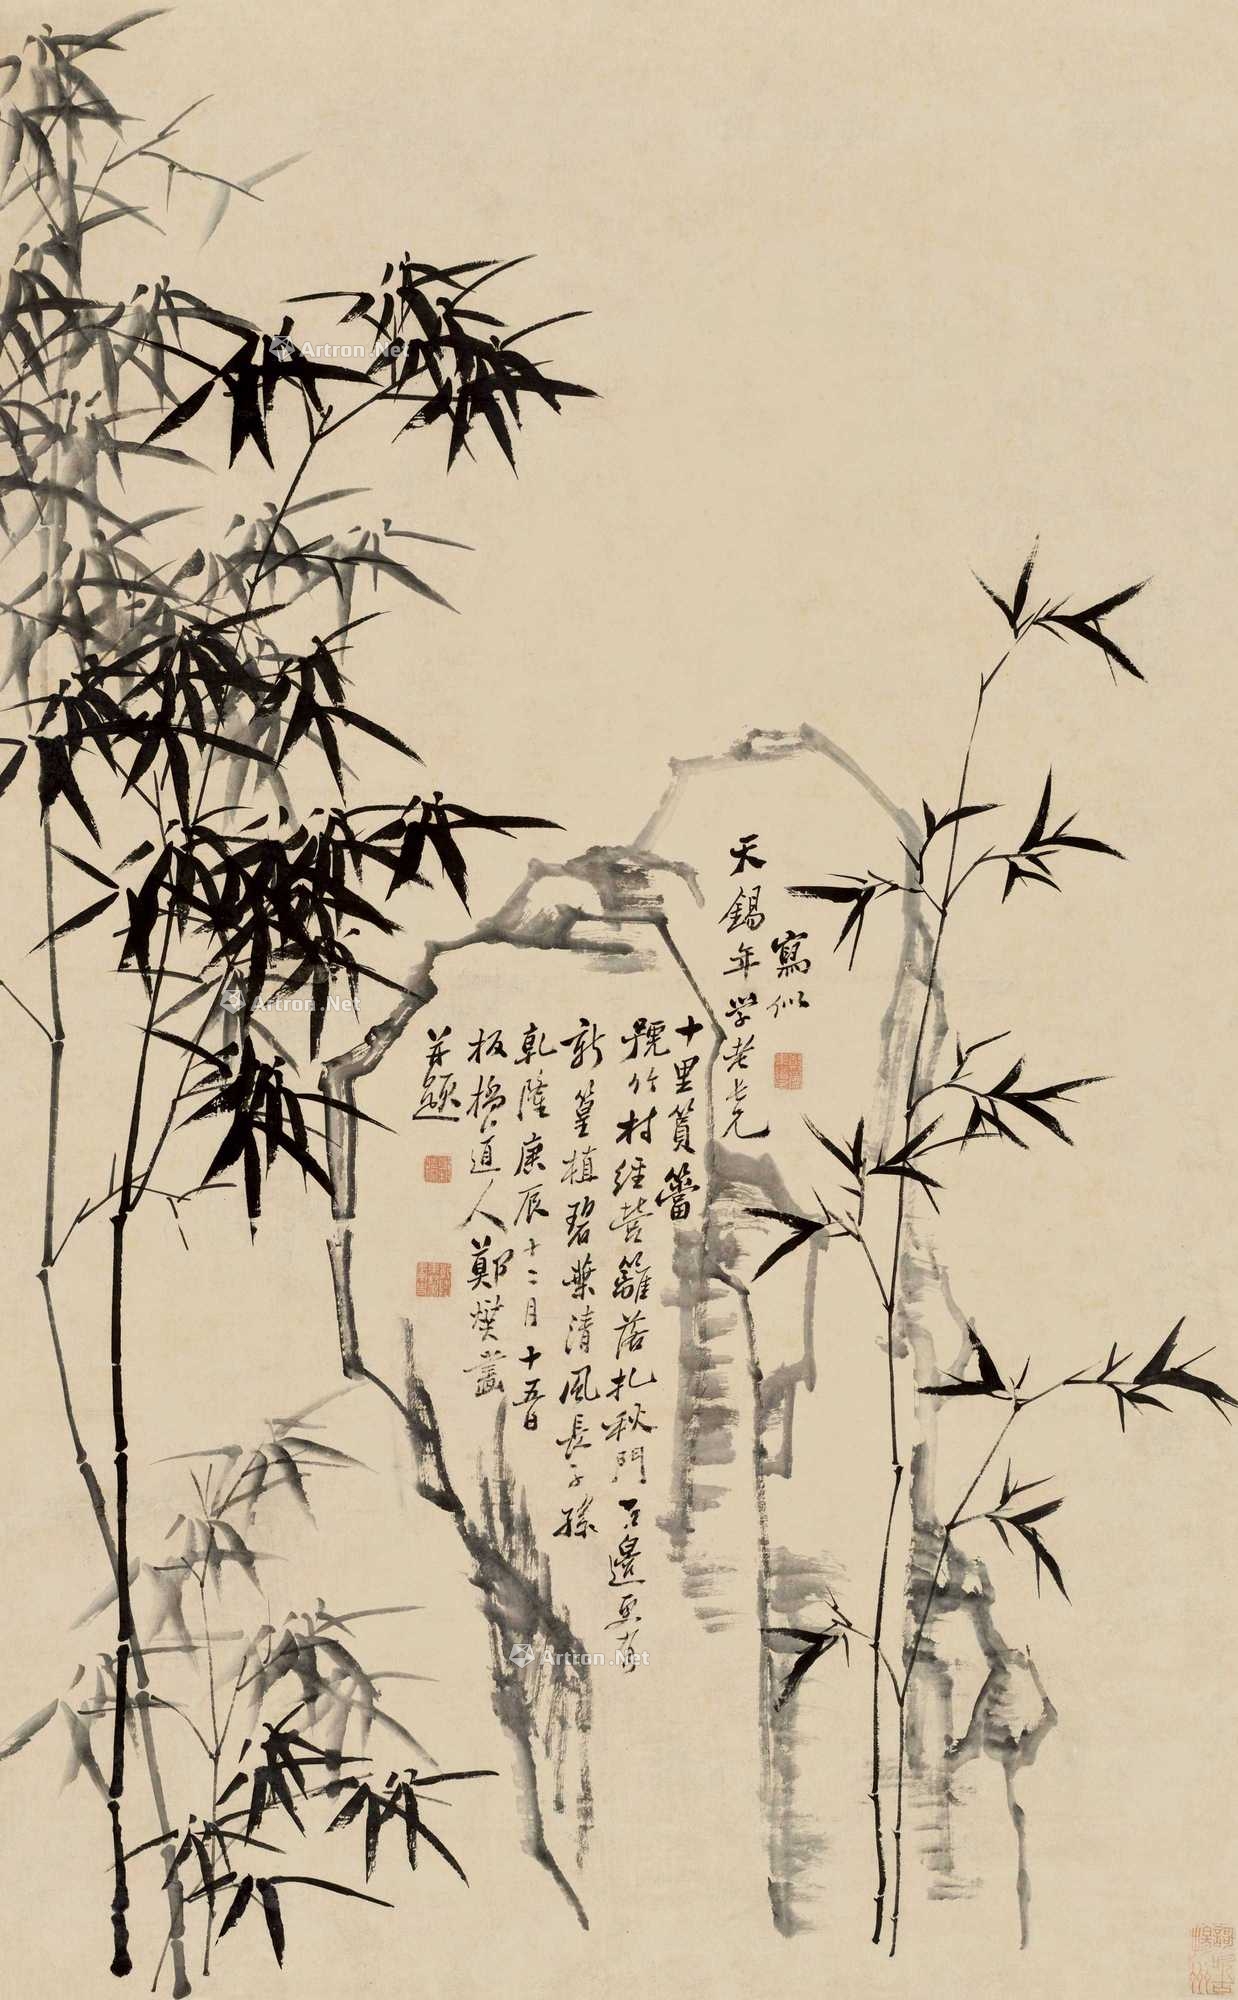 寫似
天錫年学老兄
十里篔簹
號竹村經營籬落扎秋門石邊更有
新篁植碧葉清風長子孫
乾隆庚辰十二月十五日
板橋道人鄭燮畫
并題
Artron.Net
Artron.Net
Artron.Net